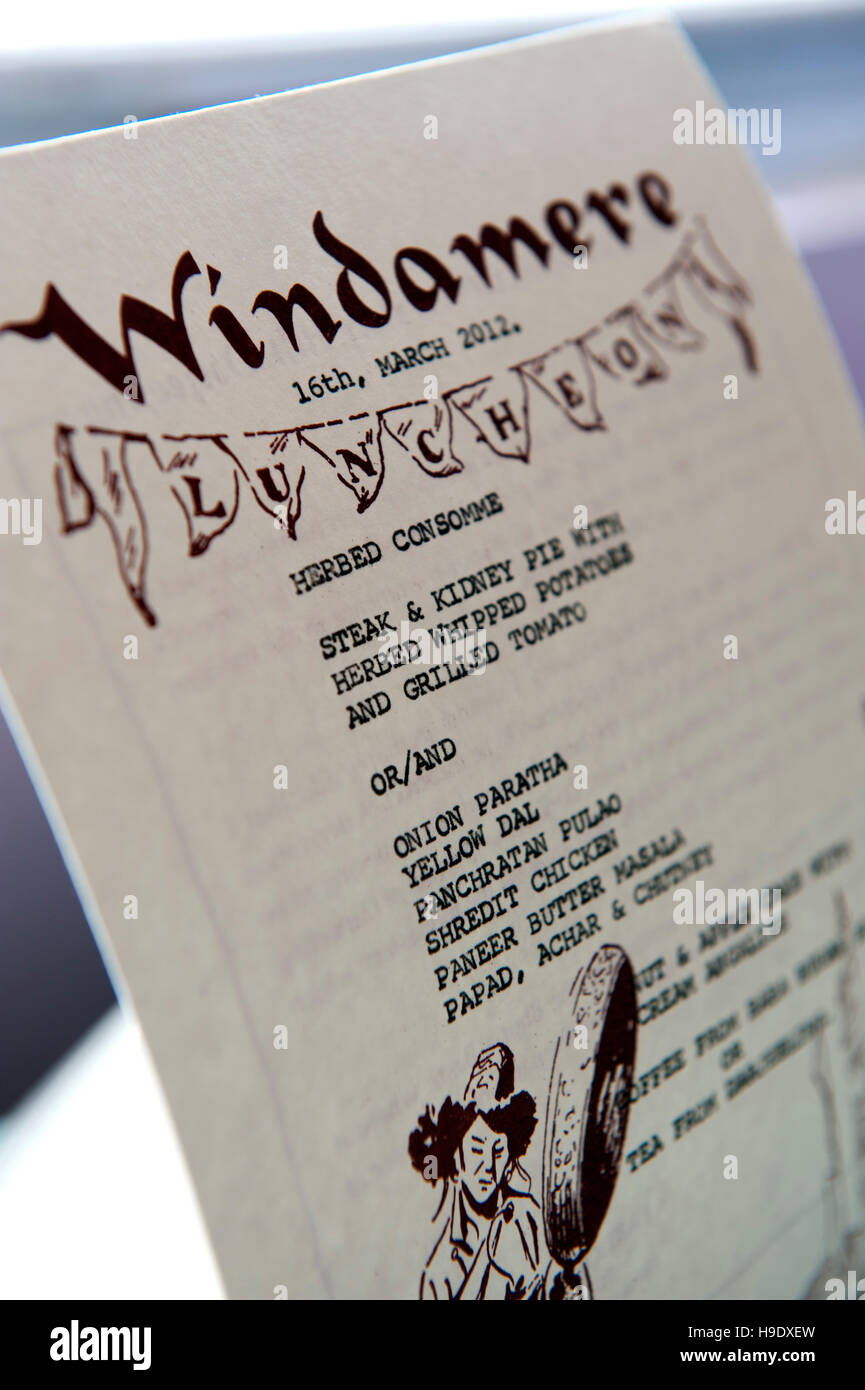 Windamere
16th, MARCH 2012.
LUNCHEON
HERBED CONSOMME
STEAK & KIDNEY PIE WITH
HERBED WHIPPED POTATOES
AND GRILLED TOMATO
OR/AND
ONION PARATHA
YELLOW DAL
PANCHRATAN PULAO
SHREDIT CHICKEN
PANEER BUTTER MASALA
PAPAD, ACHAR & CHUTNEY
NUT & APPLE WITH
CREAM
COFFEE FROM
OR
TEA FROM DARJEELING
alamy
Image ID: H9DXEW
www.alamy.com